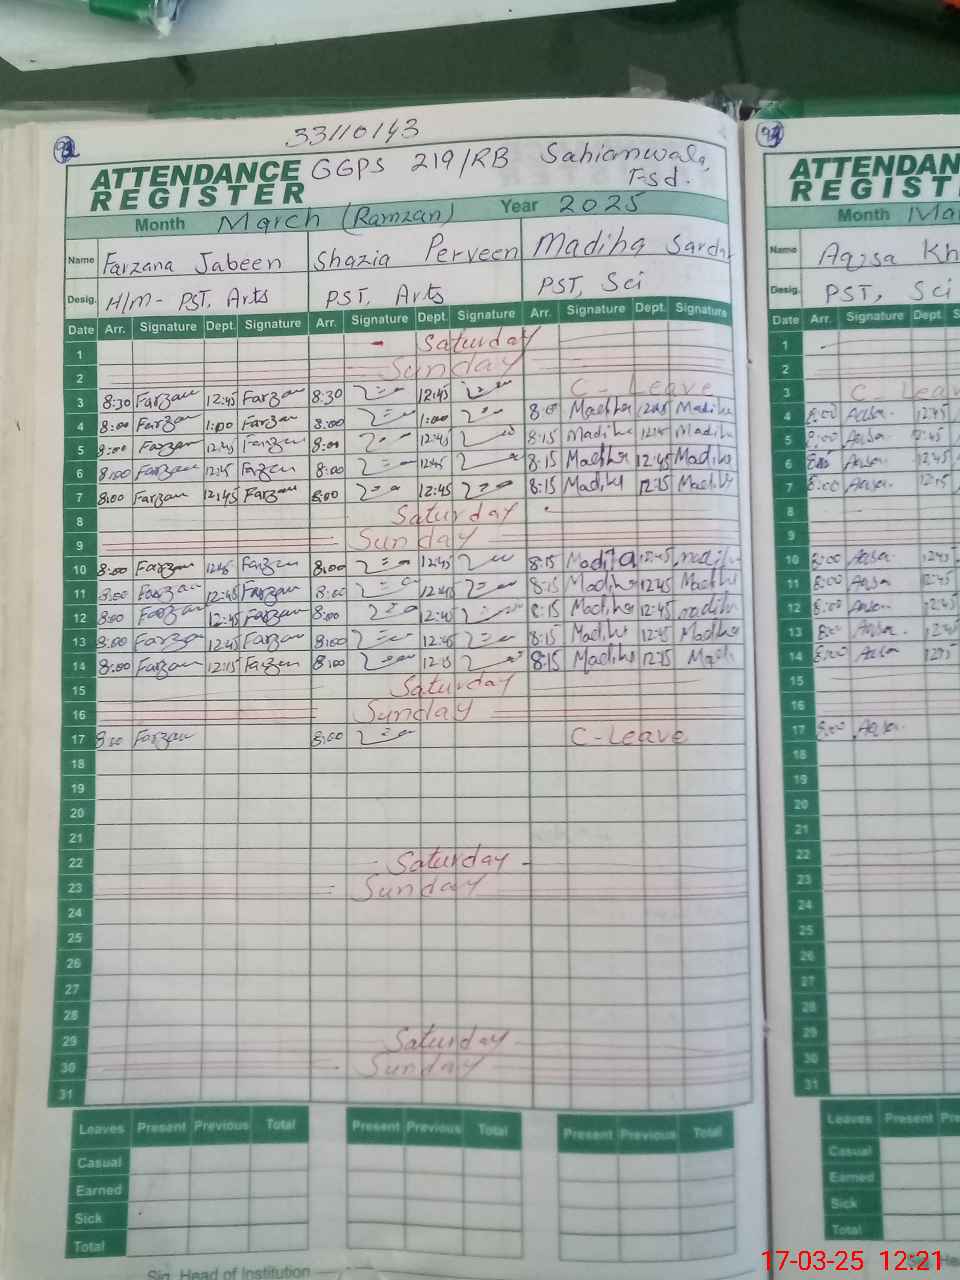 33110143
ATTENDANCE REGISTER GGPS 219/RB Sahianwala, Fsd.
Month March (Ramzan) Year 2025
Name Farzana Jabeen Shazia Perveen Madiha Sardar
Desig. H/M- PST, Arts PST, Arts PST, Sci
Date Arr. Signature Dept. Signature Arr. Signature Dept. Signature Arr. Signature Dept. Signature
1 Saturday
2 Sunday
3 8:30 Farzan 12:45 Farzan 8:30 12:45 C- Leave
4 8:00 Farzan 1:00 Farzan 8:00 1:00 8:0 Madiha Madiha
5 8:00 Farzan 12:45 Farzan 8:00 12:45 8:15 Madiha Madiha
6 8:00 Farzan 12:45 Farzan 8:00 12:45 8:15 Madiha 12:45 Madiha
7 8:00 Farzan 12:45 Farzan 8:00 12:45 8:15 Madiha 12:15 Madiha
8 Saturday
9 Sunday
10 8:00 Farzan 12:45 Farzan 8:00 12:45 8:15 Madiha 12:45 madiha
11 8:00 Farzan 12:45 Farzan 8:00 12:45 8:15 Madiha 12:45 Madiha
12 8:00 Farzan 12:45 Farzan 8:00 12:45 8:15 Madiha 12:45 madiha
13 8:00 Farzan 12:45 Farzan 8:00 12:45 8:15 Madiha 12:45 Madiha
14 8:00 Farzan 12:15 Farzan 8:00 12:15 8:15 Madiha 12:15
15 Saturday
16 Sunday
17 8:00 Farzan 8:00 C-Leave
18
19
20
21
22 Saturday
23 Sunday
24
25
26
27
28
29 Saturday
30 Sunday
31
Leaves Present Previous Total Present Previous Total Present Previous Total
Casual
Earned
Sick
Total
Sig. Head of Institution
ATTENDAN
REGIST
Month Mar
Name Aqsa Kh
Desig. PST, Sci
Date Arr. Signature Dept. S
1
2
3 C- Leav
4 8:00 Aqsa. 12:45
5 8:00 Aqsa 12:45
6 Aqsa 12:45
7 8:00 Aqsa. 12:15
8
9
10 8:00 Aqsa 12:45
11 8:00 Aqsa 12:45
12 8:00 Aqsa. 12:45
13 8:00 Aqsa. 12:45
14 8:00 Aqsa 12:15
15
16
17 8:00 Aqsa.
18
19
20
21
22
23
24
25
26
27
28
29
30
31
Leaves Present Pre
Casual
Earned
Sick
Total
Sig. He
17-03-25 12:21